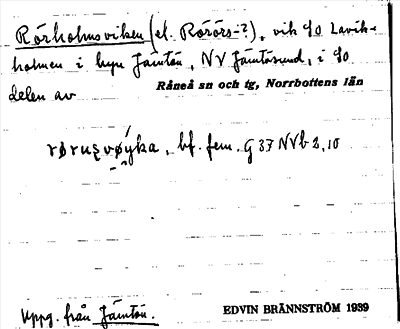 Rörholmsviken (el. Rörörs-?), vik SO Lavik-
holmen i byn Jämtön, NV Jämtösund, i SO
delen av Råneå sn och tg, Norrbottens län
bf. fem. G 37 NVb 2, 10
Uppg. från Jämtön.
EDVIN BRÄNNSTRÖM 1939